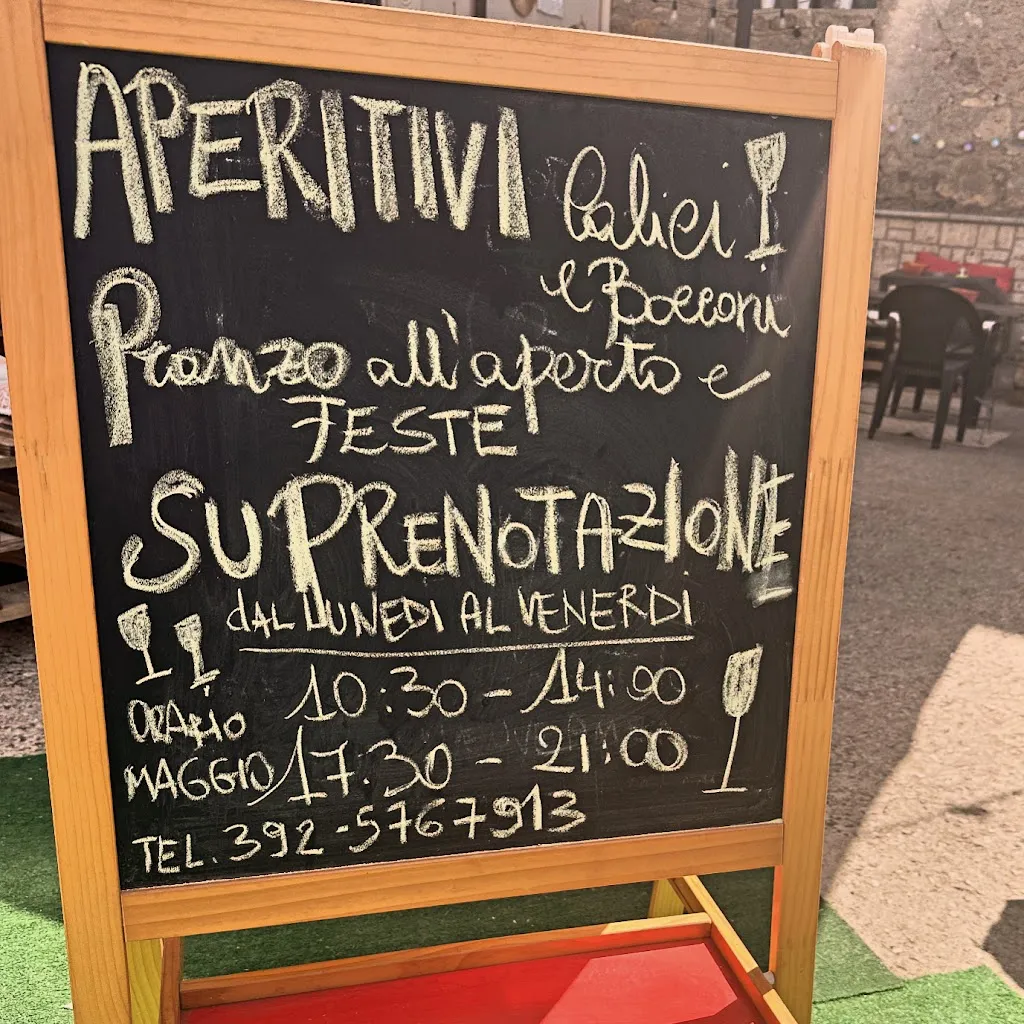 APERITIVI Calici
e Bocconi
Pranzo all'aperto e
FESTE
SU PRENOTAZIONE
DAL LUNEDI AL VENERDI
10:30 - 14:00
ORARIO
MAGGIO 17.30 - 21:00
TEL. 392-5767913